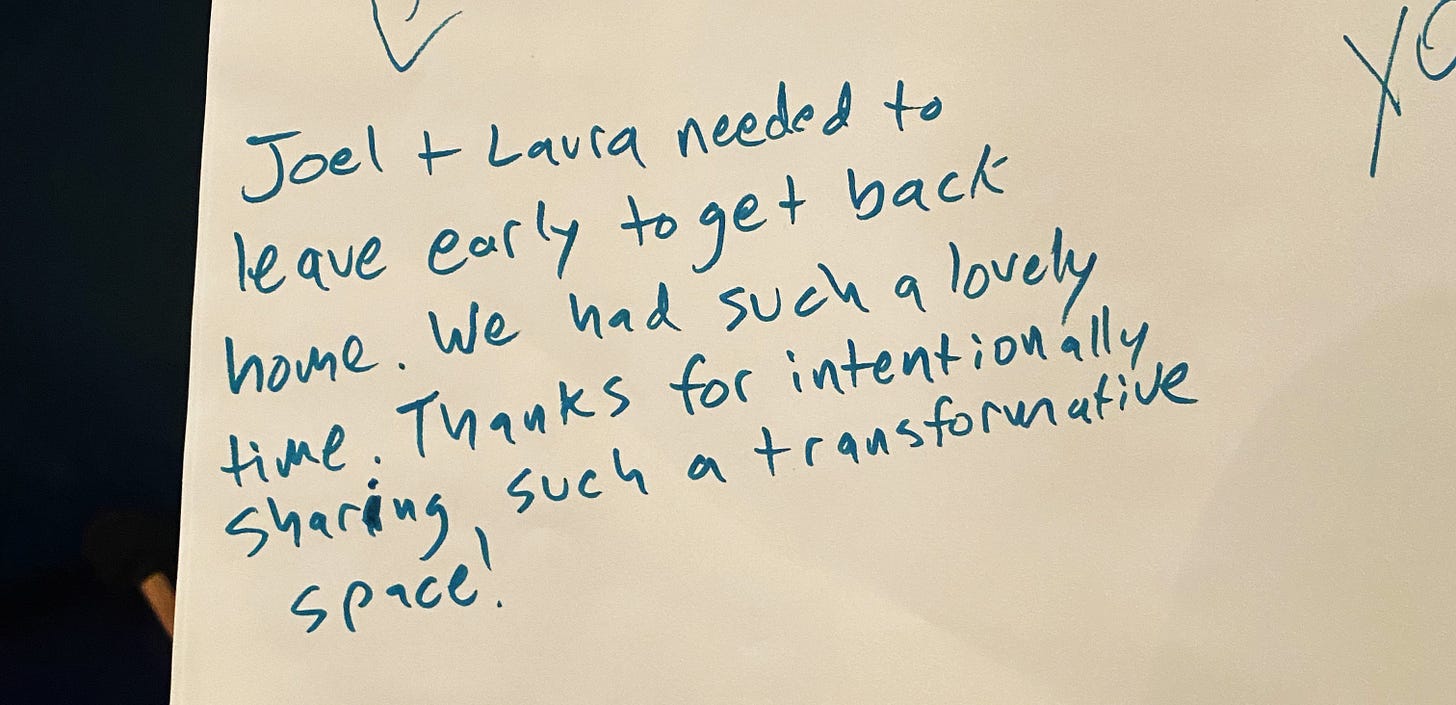 Joel + Laura needed to
leave early to get back
home. We had such a lovely
time. Thanks for intentionally
sharing such a transformative
space!